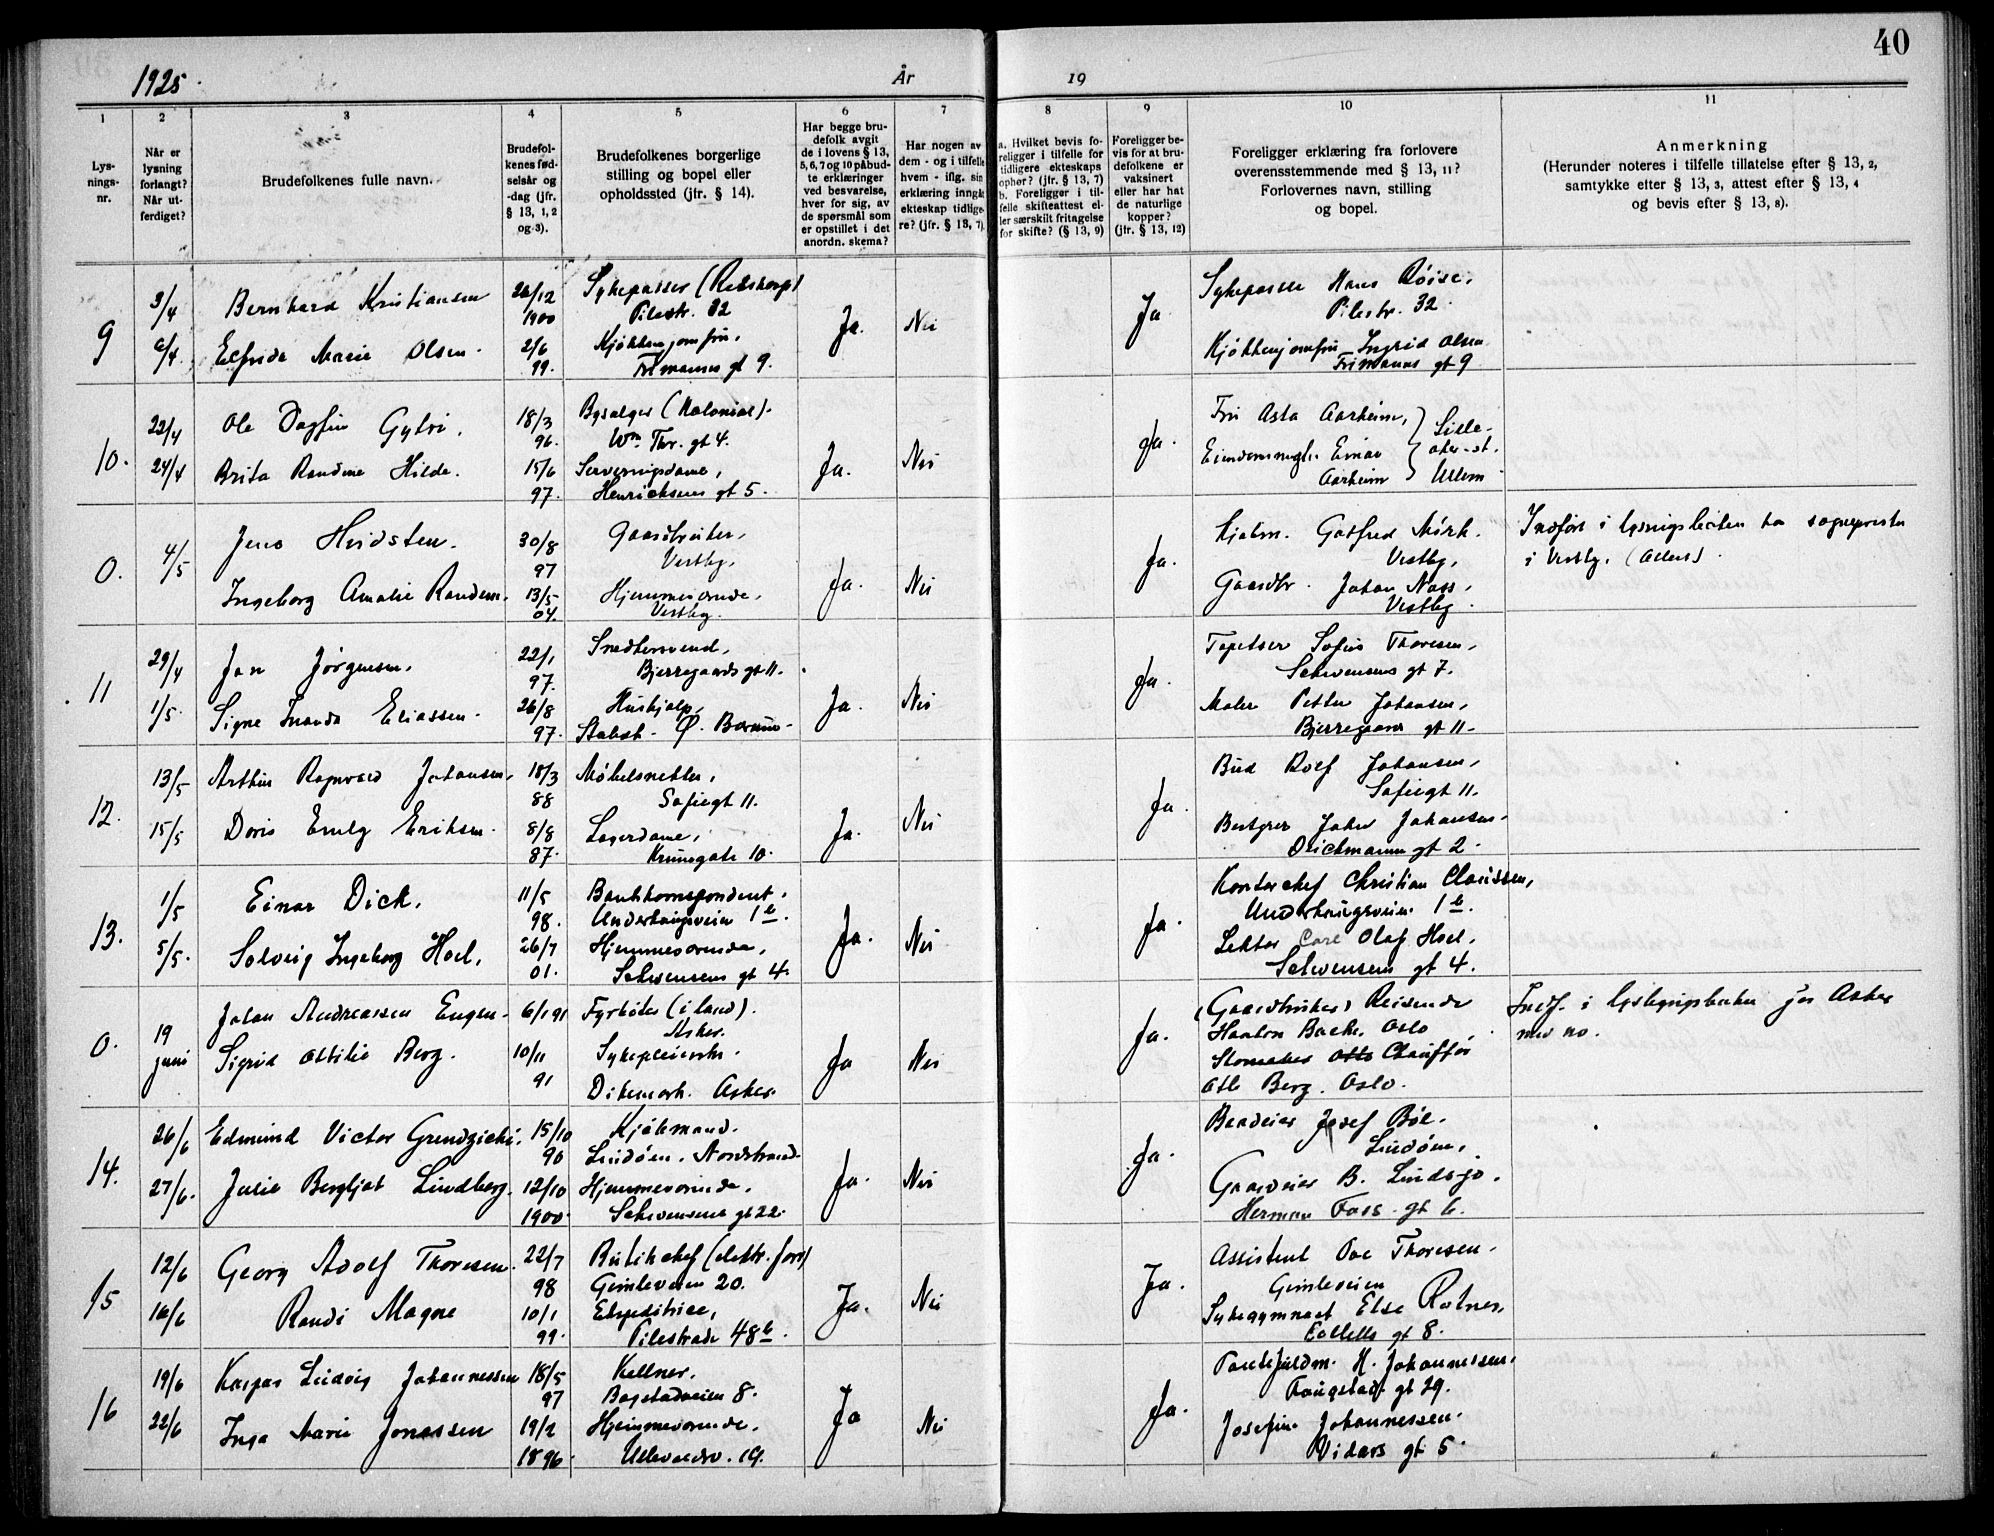 40
1925.
År
19
1
2
3
4
5
6
7
8
9
10
11
Lys-
nings-
nr.
Når er
lysning
forlangt?
Når ut-
ferdiget?
Brudefolkenes fulle navn.
Brudefol-
kenes fød-
selsår og
-dag (jfr.
§ 13, 1, 2
og 3).
Brudefolkenes borgerlige
stilling og bopel eller
opholdssted (jfr. § 14).
Har begge bru-
defolk avgit
de i lovens § 13,
5, 6, 7 og 10 påbud-
te erklæringer
ved besvarelse,
hver for sig, av
de spørsmål som
er opstillet i det
anordn. skema?
Har nogen av
dem - og i tilfelle
hvem - iflg. sin
erklæring inngåt
ekteskap tidlige-
re? (jfr. § 13, 7)
a. Hvilket bevis fo-
religger i tilfelle for
tidligere ekteskaps
ophør? (jfr. § 13, 7)
b. Foreligger i til-
felle skifteattest el-
ler særskilt fritagelse
for skifte? (§ 13, 9)
Foreligger be-
vis for at bru-
defolkene er
vaksinert
eller har hat
de naturlige
kopper?
(jfr. § 13, 12)
Foreligger erklæring fra forlovere
overensstemmende med § 13, 11?
Forlovernes navn, stilling
og bopel.
Anmerkning
(Herunder noteres i tilfelle tillatelse efter § 13, 2,
samtykke efter § 13, 3, attest efter § 13, 4
og bevis efter § 13, 8).
9
3/4
6/4
Bernhard Kristiansen
Elfrida Marie Olsen.
26/12
1900
2/6
99.
Sykepasser
Pilestr. 32
Kjøkkenjomfru,
Frimanns gt 9.
Ja.
Nei
Ja
Sykepasser Hans Røise,
Pilestr. 32.
Kjøkkenjomfru Ingrid Olsen
Frimanns gt 9
10.
22/4
24/4
Ole Dagfin Gylvi.
Brita Randine Hilde.
18/3
96.
15/6
97.
(Kolonial).
Wm. Thr. gt 4.
Serveringsdame,
Henrichsens gt 5.
Ja.
Nei
Ja.
Fru Asta Aarheim,
Einar
Aarheim
Lille-
aker st.
Ullern
0.
4/5
Jens Hvidsten.
Ingeborg Amalie Randem.
30/8
97
13/5
04.
Gaardbruker,
Vestby.
Hjemmeværende,
Vestby.
Ja.
Nei
Ja.
Hjalm. Gotfred Mørk.
Vestby,
Gaardbr. Johan Nass,
Vestby.
Indført i lysningsboken hos sognepresten
i Vestby.
11
29/4
1/5.
Jon Jörgensen.
Signe Eliassen.
22/1
97.
26/8
97.
Snedkersvend,
Bjerregaards gt 11.
Hushjelp,
Stabek. Ø. Bærum.
Ja.
Nei
Ja.
Tapetser Sofus Thoresen,
Schwensens gt 7.
Maler Petter Johansen,
Bjerregaards gt 11.
12.
13/5
15/5
Arthur Ragnvald Johansen,
Doris Emily Eriksen.
18/3
88
8/8
87.
Møbelsnekker,
Sofiegt 11.
Lagerdame,
Krumgate 10.
Ja.
Nei
Ja.
Bud Rolf Johansen,
Sofiegt 11.
Bestyrer John Johansen.
Deichmanns gt 2.
13.
1/5
5/5.
Einar Dick.
Solveig Ingeborg Hoel.
11/5
98.
26/7
01.
Bankkorrespondent.
Underhaugsveien 1b.
Hjemmeværende,
Schwensens gt 4.
Ja.
Nei
Ja.
Kontorchef Christian Clausen,
Underhaugsveien 1b.
Lektor Carl Olaf Hoel.
Schwensens gt 4.
0.
19
juni
Johan Andreassen Engen.
Sigrid Ottilie Berg.
6/1 91
10/11
91
Fyrbøter (i land).
Asker.
Sykepleierske.
Dikemark. Asker.
Ja
Nei
Ja.
(Gaardbruker) Reisende
Haakon Bache, Oslo
Skomaker Otto Chauffør
Otto Berg. Oslo.
Indf. i lysningsboken for Asker
med no.
14.
26/6
27/6.
Edmund Victor Grendzicki.
Julie Bergljot Lindberg.
15/10
90
12/10
1900.
Kjøbmand.
Lindøen. Nordstrand
Hjemmeværende.
Schwensens gt 22.
Ja.
Nei
Ja.
Josef Bøe.
Lindøen,
Gaardeier B. Lindsjo.
Herman Foss. gt 6.
15
12/6
16/6
Georg Adolf Thoresen.
Randi Magne
22/7
98
10/1
99.
Butikchef (elektr. forr)
Gimleveien 20.
Ekspeditrice,
Pilestrade 48b.
Ja.
Nei
Ja.
Assistent Ove Thoresen.
Gimleveien
Sykegymnast Else Rotnes,
Colletts gt 8.
16
19/6
22/6
Kaspar Ludvig Johannessen
Inga Marie Jonassen
18/5
97
19/2
1896.
Kellner.
Bogstadveien 8.
Hjemmeværende.
Ullevaalsv. 19.
Ja
Nei
Ja.
H. Johannessen,
Fougstads gt 29.
Josefine Johannessen.
Vidars gt 5.